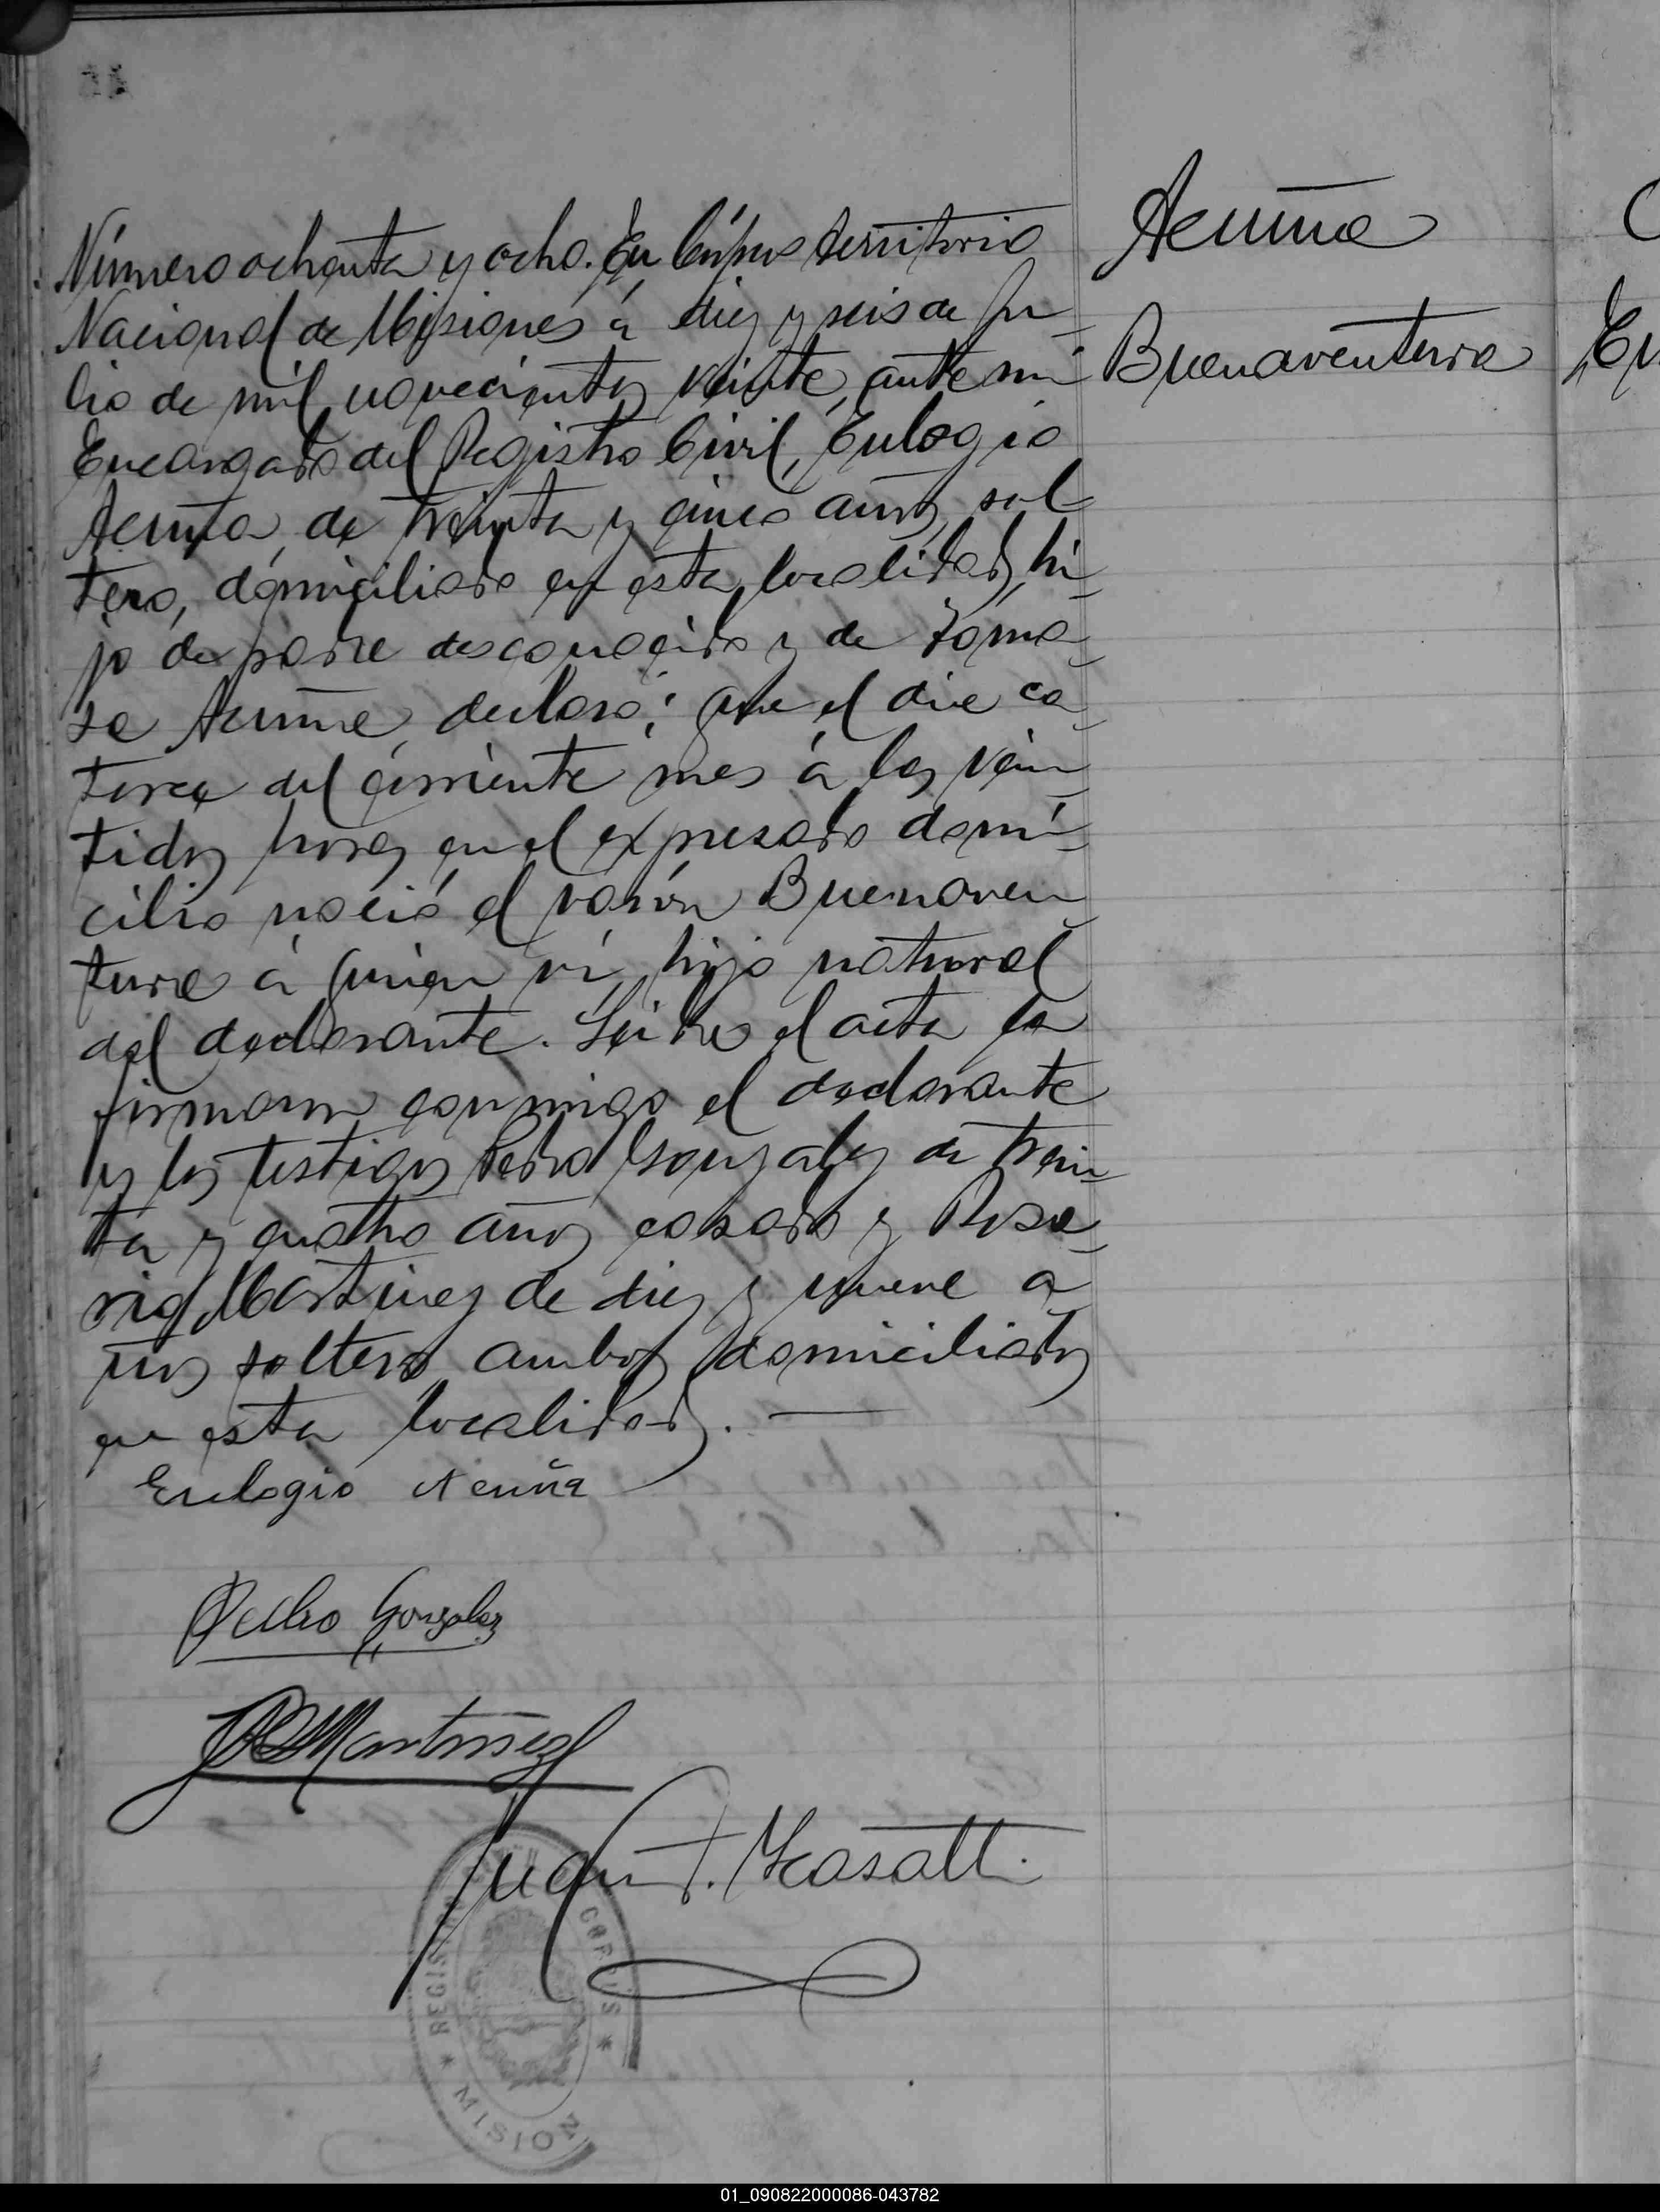 Acuña
Buenaventura
Número ochenta y ocho. En Córpus territorio
Nacional de Misiones á diez y seis de Ju-
lio de mil novecientos veinte, ante mí
Encargado del Registro Civil, Eulogio
Acuña, de treinta y cinco años, sol
tero, domiciliado en esta localidad, hi-
jo de padre desconocido y de Toma-
sa Acuña, declaró: que el dia ca-
torce del corriente mes á las vein-
tidos horas en el expresado domi-
cilio nació el varón Buenaven-
tura á quien ví, hijo natural
del declarante. Leida el acta la
firmaron conmigo el declarante
y los testigos Pedro Gonzalez de trein-
ta y cuatro años casado y Rosa-
rio Martinez de diez y nueve a
ños soltero ambos domiciliados
en esta localidad.
Eulogio Acuña
Pedro Gonzalez
Martinez
Juan
REGIS
CORPUS * MISION
01_090822000086-043782